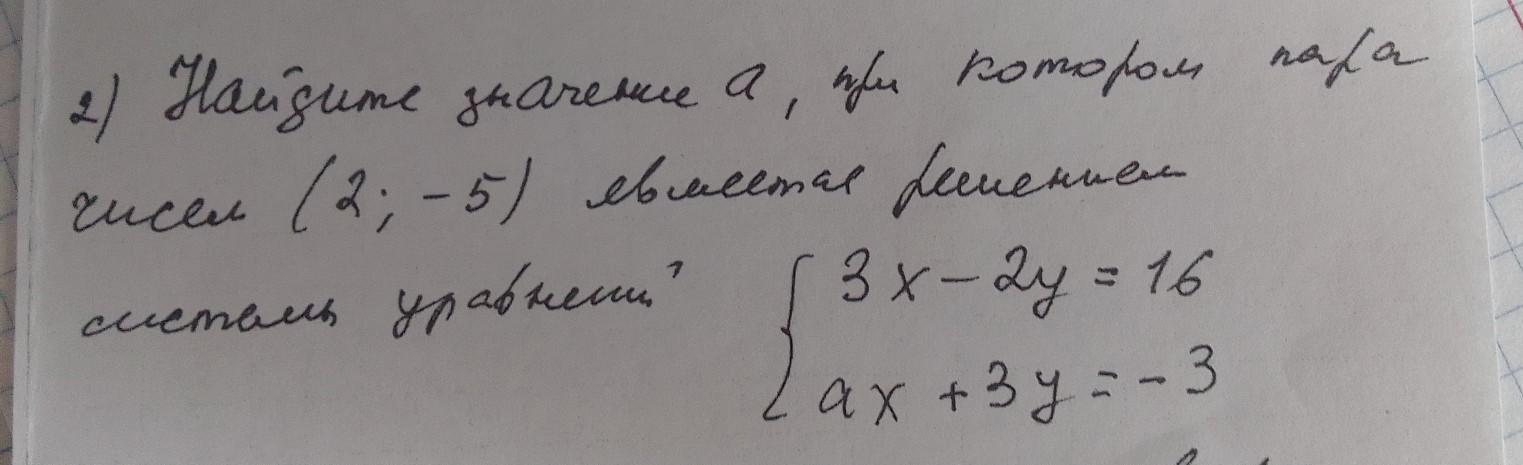 2) Найдите значение a, при котором пара
чисел (2; -5) является решением
системы уравнений
3x - 2y = 16
ax + 3y = -3